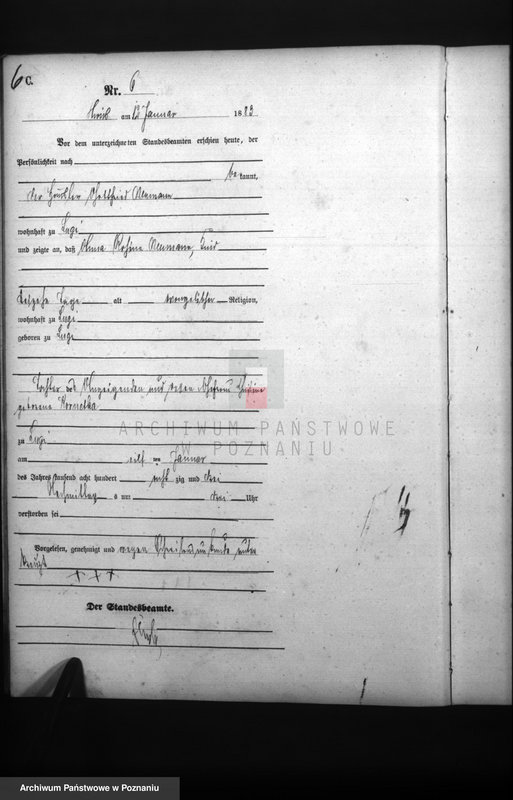 6 C.
Nr. 6
am 12 Januar 1883
Vor dem unterzeichneten Standesbeamten erschien heute, der
Persönlichkeit nach
be kannt,
der Häusler Gottfried Neumann
wohnhaft zu Lugi
und zeigte an, daß Anna Rosina Neumann, Kind
sechszehn Tage alt evangelischer Religion,
wohnhaft zu Lugi
geboren zu Lugi
Tochter des Anzeigenden und dessen Ehefrau
geborene
zu Lugi
am elf ten Januar
des Jahres tausend acht hundert acht zig und drei
Nachmittag s um drei Uhr
verstorben sei
Vorgelesen, genehmigt und wegen Schreibensunkunde unter
kreuzt
+ + +
Der Standesbeamte.
ARCHIWUM PAŃSTWOWE
W POZNANIU
Archiwum Państwowe w Poznaniu